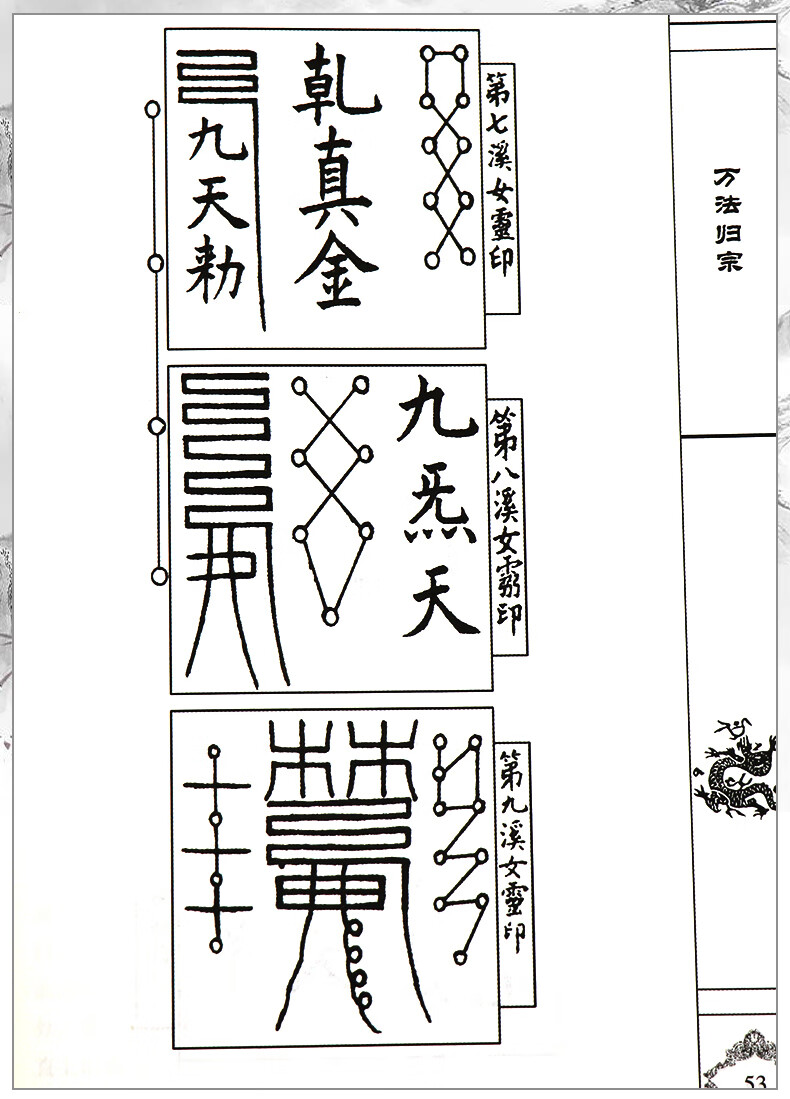 万法归宗
第七溪女靈印
乹真金
九天勅
第八溪女靈印
九炁天
第九溪女靈印
53